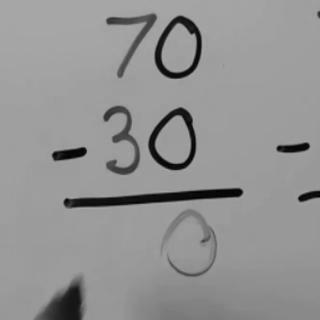 70
- 30
0